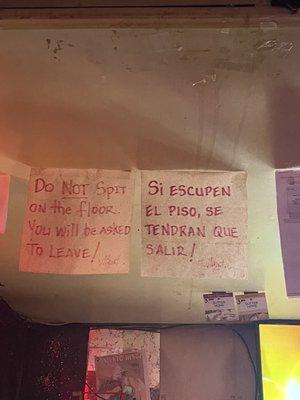 Do NOT Spit
on the floor.
You will be asked
To LEAVE!
Si ESCUPEN
EL PISO, SE
TENDRAN QUE
SALIR!